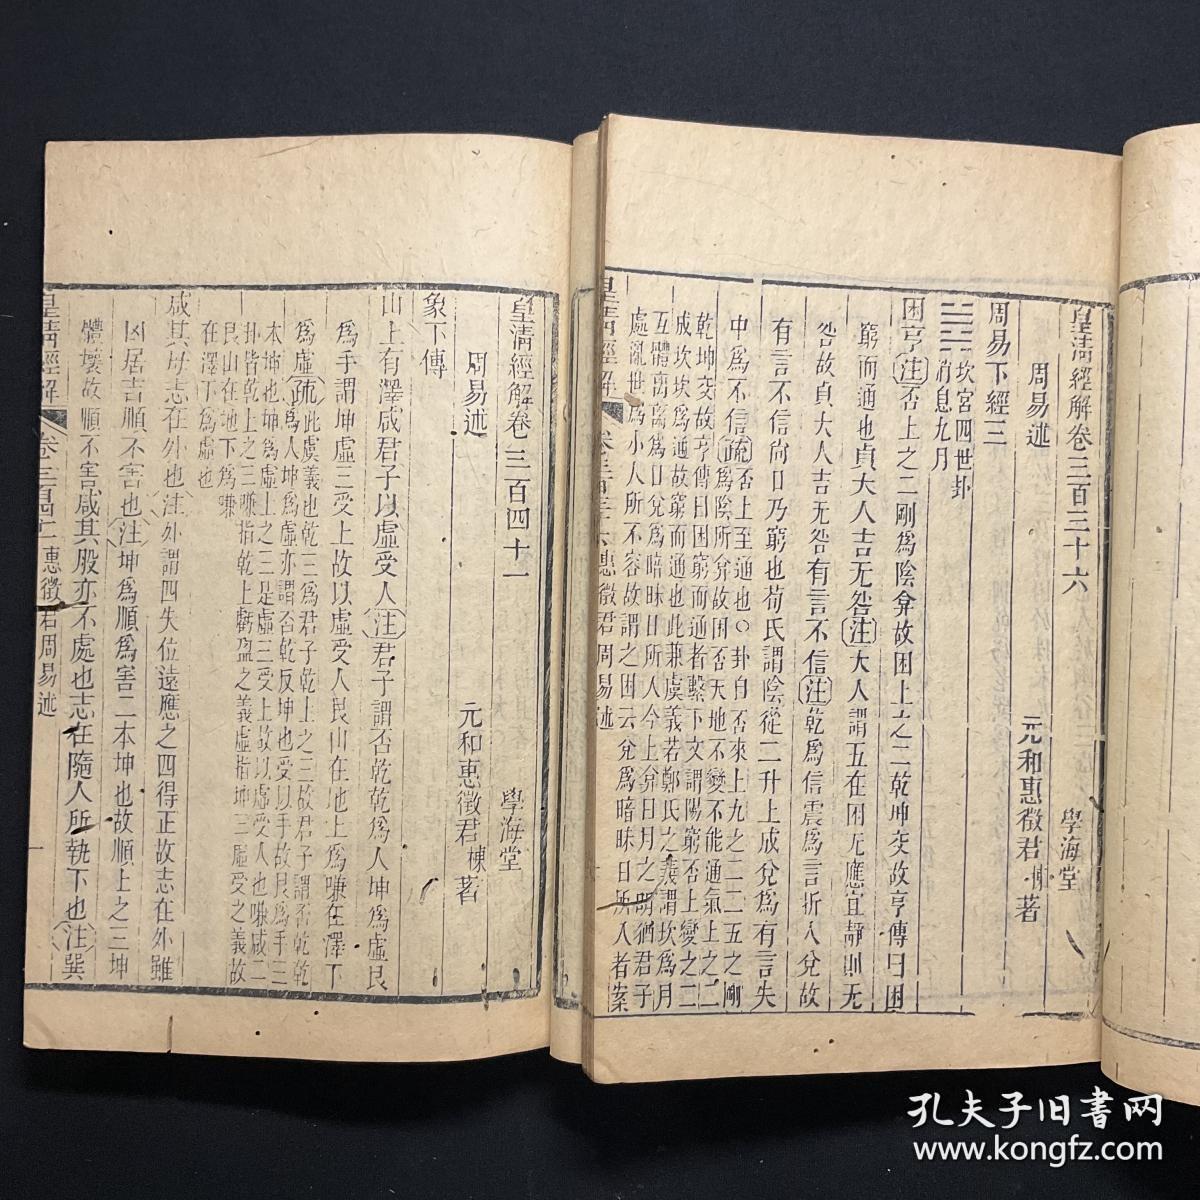 皇清經解卷三百三十六
學海堂
周易述
元和惠徵君棟著
周易下經三
坎宮四世卦
消息九月
困亨注否上之二剛爲陰弇故困上之二乾坤交故亨傳曰困
窮而通也貞大人吉无咎注大人謂五在困无應宜靜則无
咎故貞大人吉无咎有言不信注乾爲信震爲言折入兌故
有言不信尙口乃窮也荀氏謂陰從二升上成兌爲有言失
中爲不信疏否上至通也○卦自否來上九之二二五之剛
爲陰所弇故困否天地不變不能通氣上之二
乾坤交故亨傳曰困窮而通者繫下文謂陽窮否上變之二
成坎坎爲通故窮而通也此兼虞義若鄭氏之義謂坎爲月
互體離離爲日兌爲暗昧日所入今上弇日月之明猶君子
處亂世爲小人所不容故謂之困云兌爲暗昧日所入者案
皇清經解
惠徵君周易述
皇清經解卷三百四十一
學海堂
周易述
元和惠徵君棟著
象下傳
山上有澤咸君子以虛受人注君子謂否乾乾爲人坤爲虛艮
爲手謂坤虛三受上故以虛受人艮山在地上爲嗛在澤下
爲虛疏此虞義也乾三爲君子乾上之三故君子謂否乾乾
爲人坤爲虛亦謂否乾反坤也受以手故艮爲手三
本坤也坤爲虛上之三是虛三受上故以虛受人也嗛咸二
卦皆乾上之三嗛指乾上虧盈之義虛指坤三虛受之義故
艮山在地下爲嗛
在澤下爲虛也
咸其母志在外也注外謂四失位遠應之四得正故志在外雖
凶居吉順不害也注坤爲順爲害二本坤也故順上之三坤
體壞故順不害咸其股亦不處也志在隨人所執下也注巽
皇清經解
惠徵君周易述
孔夫子旧書网
www.kongfz.com